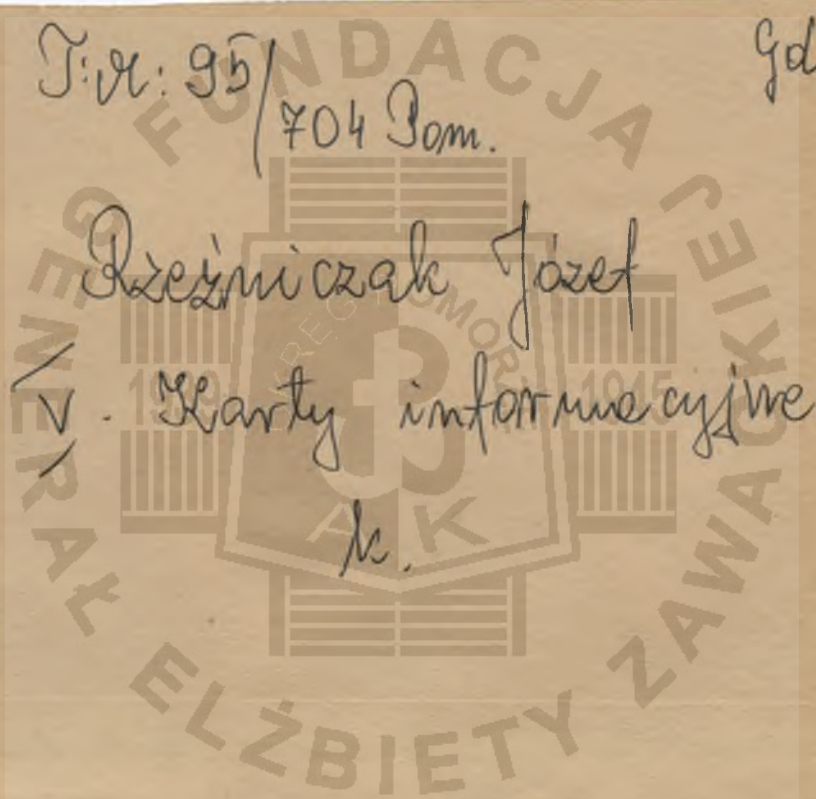 T: M: 95/704 Pom.
Gd
Rzeźniczak Józef
V. Karty informacyjne
k.
FUNDACJA GENERAŁ ELŻBIETY ZAWACKIEJ
OKRĘG POMORZE
1939
1945
AK